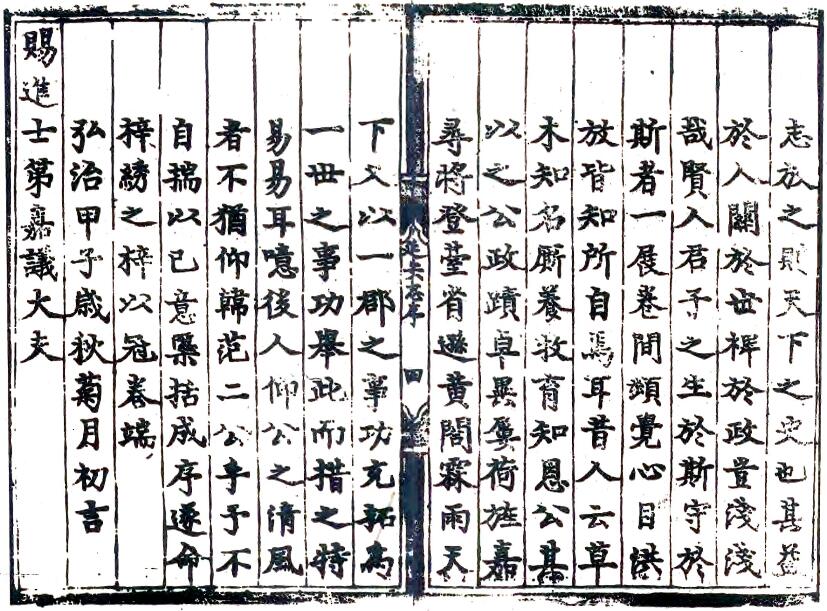 志放之則天下之史也其益
於人關於世裨於政豈淺淺
哉賢人君子之生於斯守於
斯者一展卷間頓覺心目洪
放皆知所自焉耳昔人云草
木知名厮養牧育知恩公其
以之公政蹟卓異屢荷旌嘉
尋將登臺省遜黄閣霖雨天
延安志序 四
下又以一郡之事功充拓為
一世之事功舉此而措之特
易易耳噫後人仰公之清風
者不猶仰韓范二公乎予不
自揣以已意檃括成序遂命
梓綉之梓以冠卷端
弘治甲子歲秋菊月初吉
賜進士第嘉議大夫